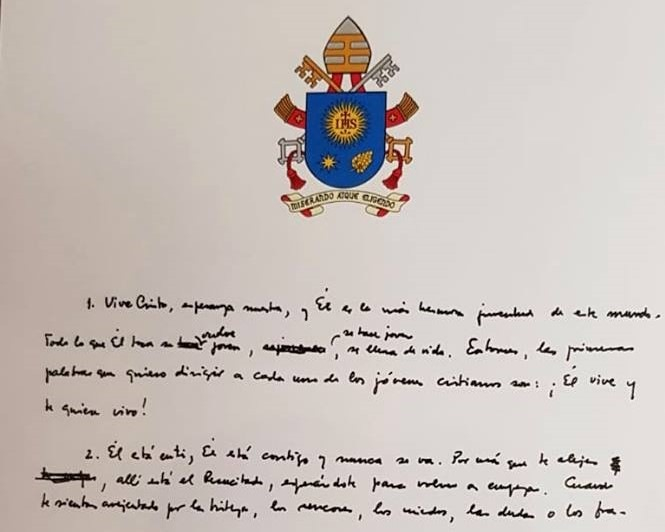 IHS
MISERANDO ATQUE ELIGENDO
1. Vive Cristo, esperanza nuestra, y Él es la más hermosa juventud de este mundo.
Todo lo que Él toca se vuelve joven, se hace joven, se llena de vida. Entonces, las primeras
palabras que quiero dirigir a cada uno de los jóvenes cristianos son: ¡Él vive y
te quiere vivo!
2. Él está en ti, Él está contigo y nunca se va. Por más que te alejes
, allí está el Resucitado, esperándote para volver a empezar. Cuando
te sientas avejentado por la tristeza, los rencores, los miedos, las dudas o los fra-